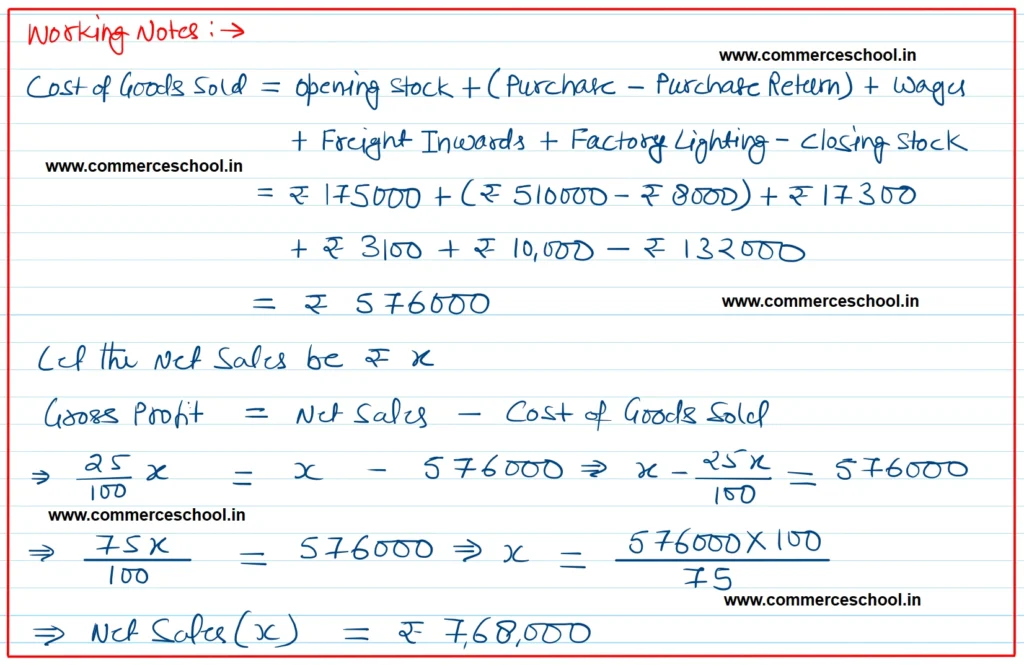 Working Notes :→
www.commerceschool.in
Cost of Goods Sold = opening stock + (Purchase - Purchase Return) + wages
+ Freight Inwards + Factory Lighting - closing stock
www.commerceschool.in
= ₹ 175000 + (₹ 510000 - ₹ 8000) + ₹ 17300
+ ₹ 3100 + ₹ 10,000 - ₹ 132000
= ₹ 576000
www.commerceschool.in
Let the Net Sales be ₹ x
Gross Profit = Net Sales - Cost of Goods Sold
⇒ 25/100 x = x - 576000 ⇒ x - 25x/100 = 576000
www.commerceschool.in
⇒ 75x/100 = 576000 ⇒ x = 576000X100/75
www.commerceschool.in
⇒ Net Sales (x) = ₹ 7,68,000